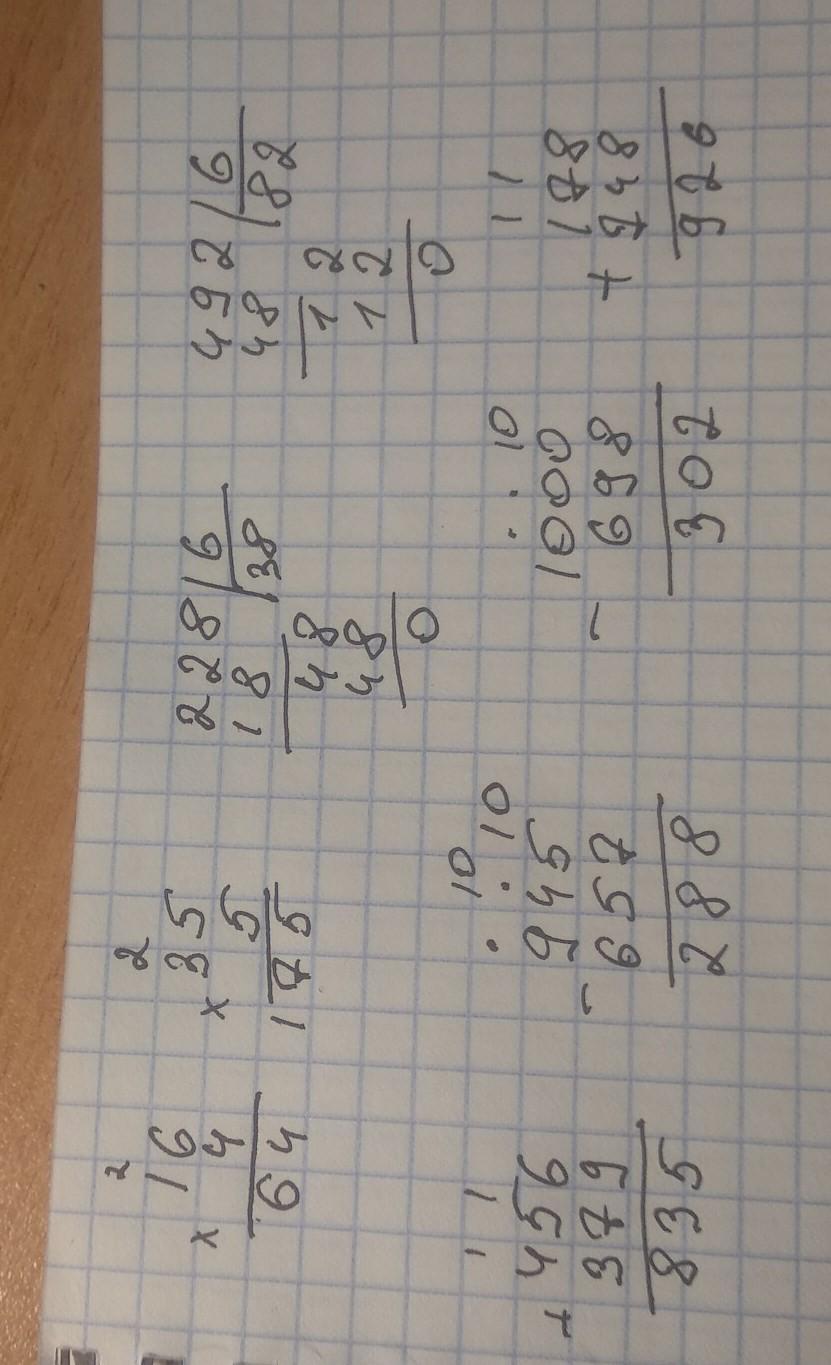 2
× 16
4
64
2
× 35
5
175
228 | 6
18 | 38
48
48
0
492 | 6
48 | 82
12
12
0
1 1
+ 456
379
835
10
. . 10
- 945
657
288
. . 10
- 1000
698
302
1 1
178
+ 748
926